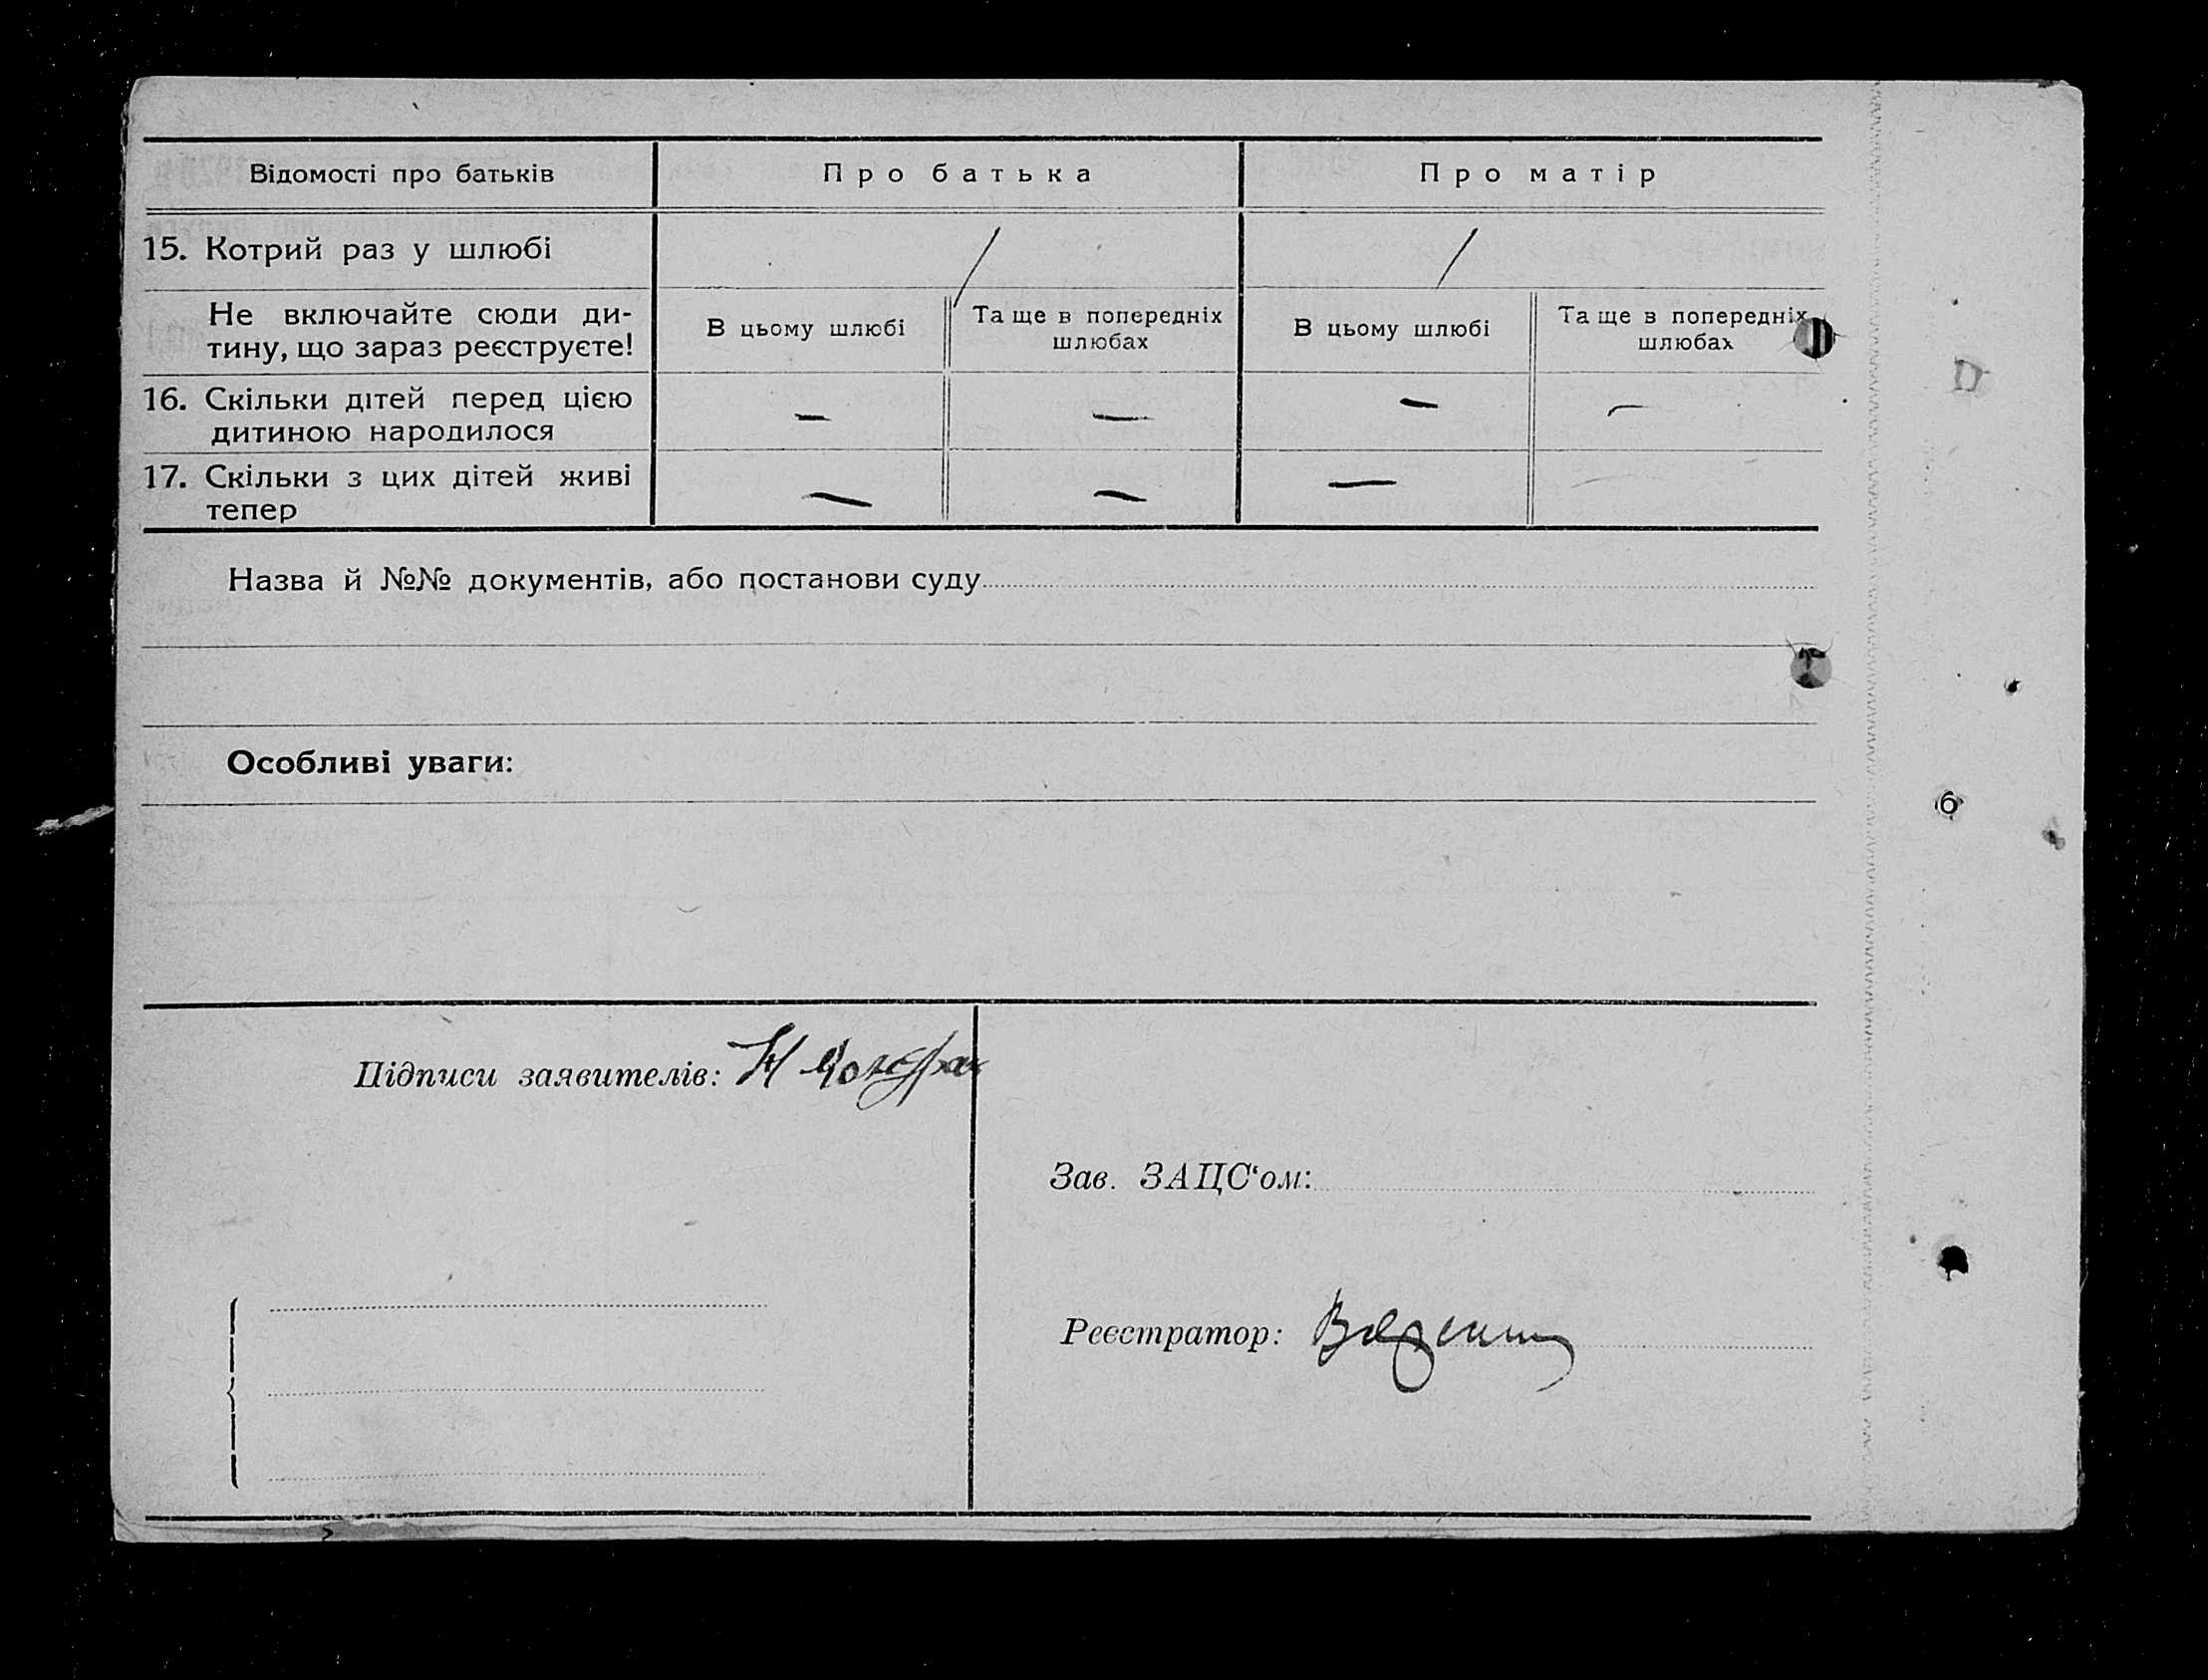 Відомості про батьків	Про батька	Про матір
15. Котрий раз у шлюбі	/	/
Не включайте сюди ди-
тину, що зараз реєструєте!
В цьому шлюбі	Та ще в попередніх
шлюбах	В цьому шлюбі	Та ще в попередніх
шлюбах
16. Скільки дітей перед цією
дитиною народилося	—	—	—	—
17. Скільки з цих дітей живі
тепер	—	—	—	—
Назва й №№ документів, або постанови суду
Особливі уваги:
Підписи заявителів:
Зав. ЗАЦС‘ом:
Реєстратор: